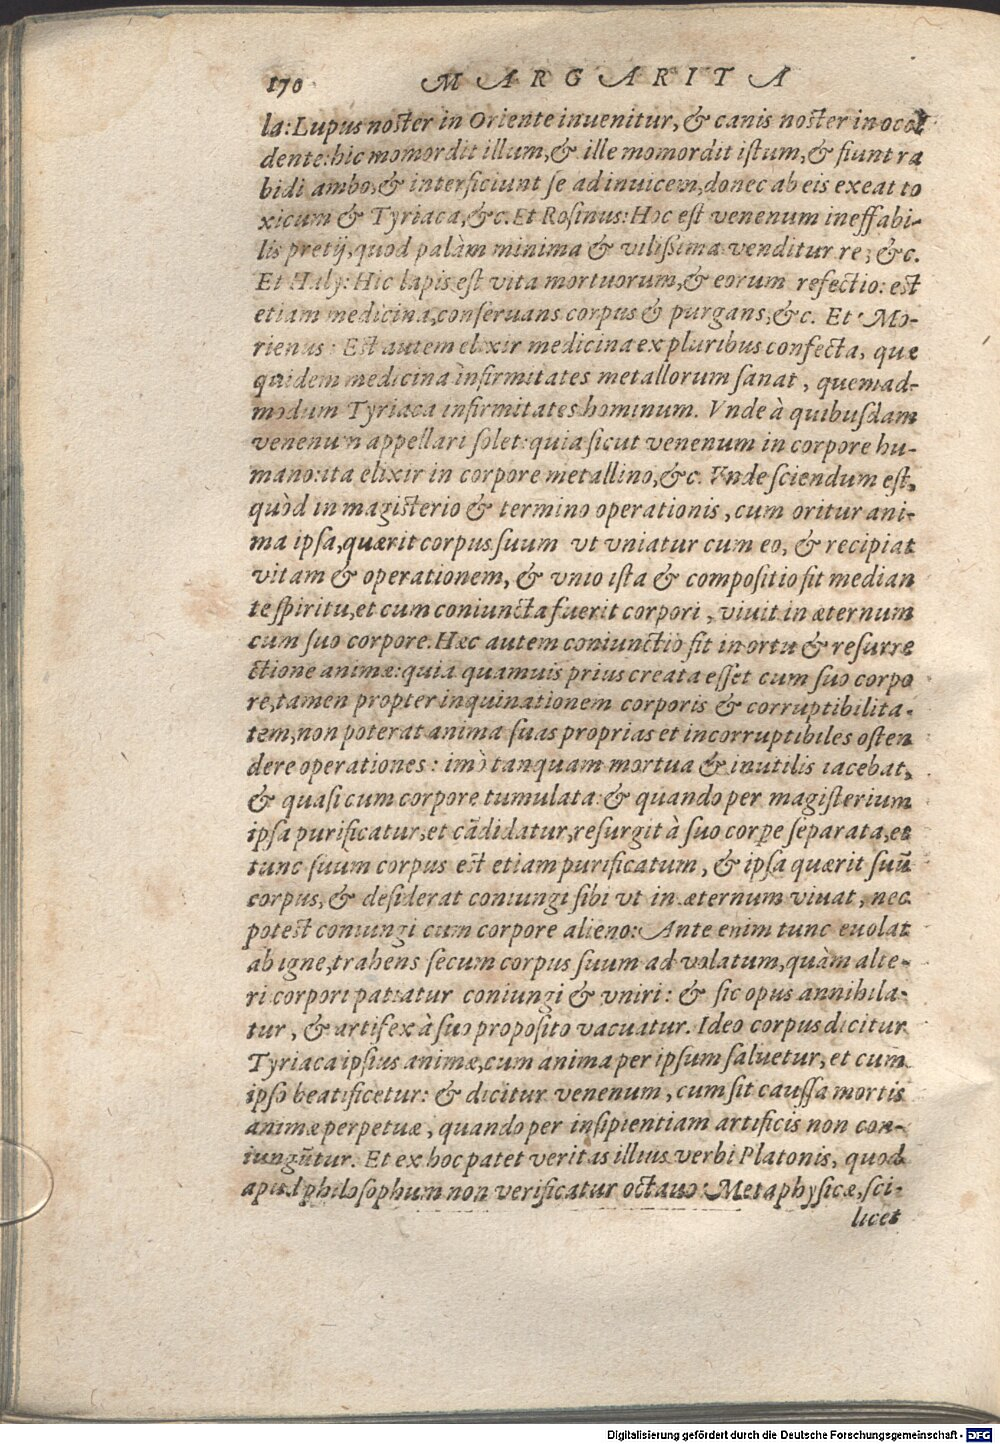 170 MARGARITA
la: Lupus noster in Oriente inuenitur, & canis noster in occi
dente: hic momordit illum, & ille momordit istum, & fiunt ra
bidi ambo, & interficiunt se adinuicem, donec ab eis exeat to
xicum & Tyriaca, &c. Et Rosinus: Hoc est venenum ineffabi-
lis pretij, quod palàm minima & vilissima venditur re, &c.
Et Haly: Hic lapis est vita mortuorum, & eorum refectio: est
etiam medicina, conseruans corpus & purgans, &c. Et Mo-
rienus: Est autem elixir medicina ex pluribus confecta, que
quidem medicina infirmitates metallorum sanat, quemad-
modum Tyriaca infirmitates hominum. Vnde à quibusdam
venenum appellari solet: quia sicut venenum in corpore hu-
mano: ita elixir in corpore metallino, &c. Vnde sciendum est,
quòd in magisterio & termino operationis, cum oritur ani-
ma ipsa, quærit corpus suum vt vniatur cum eo, & recipiat
vitam & operationem, & vnio ista & compositio fit median
te spiritu, et cum coniuncta fuerit corpori, viuit in æternum
cum suo corpore. Hæc autem coniunctio fit in ortu & resurre
ctione animæ: quia quamuis prius creata esset cum suo corpo
re, tamen propter inquinationem corporis & corruptibilita-
tem, non poterat anima suas proprias et incorruptibiles osten
dere operationes: imò tanquam mortua & inutilis iacebat,
& quasi cum corpore tumulata: & quando per magisterium
ipsa purificatur, et cãdidatur, resurgit à suo corpe separata, et
tunc suum corpus est etiam purificatum, & ipsa quærit suũ
corpus, & desiderat coniungi sibi vt in æternum viuat, nec
potest coniungi cum corpore alieno: Ante enim tunc euolat
ab igne, trahens secum corpus suum ad volatum, quàm alte-
ri corpori patiatur coniungi & vniri: & sic opus annihila-
tur, & artifex à suo proposito vacuatur. Ideo corpus dicitur
Tyriaca ipsius animæ, cum anima per ipsum saluetur, et cum
ipso beatificetur: & dicitur venenum, cum sit caussa mortis
animæ perpetuæ, quando per insipientiam artificis non con-
iungũtur. Et ex hoc patet veritas illius verbi Platonis, quod
apud philosophum non verificatur octauo: Metaphysicæ, sci-
licet
Digitalisierung gefördert durch die Deutsche Forschungsgemeinschaft - DFG